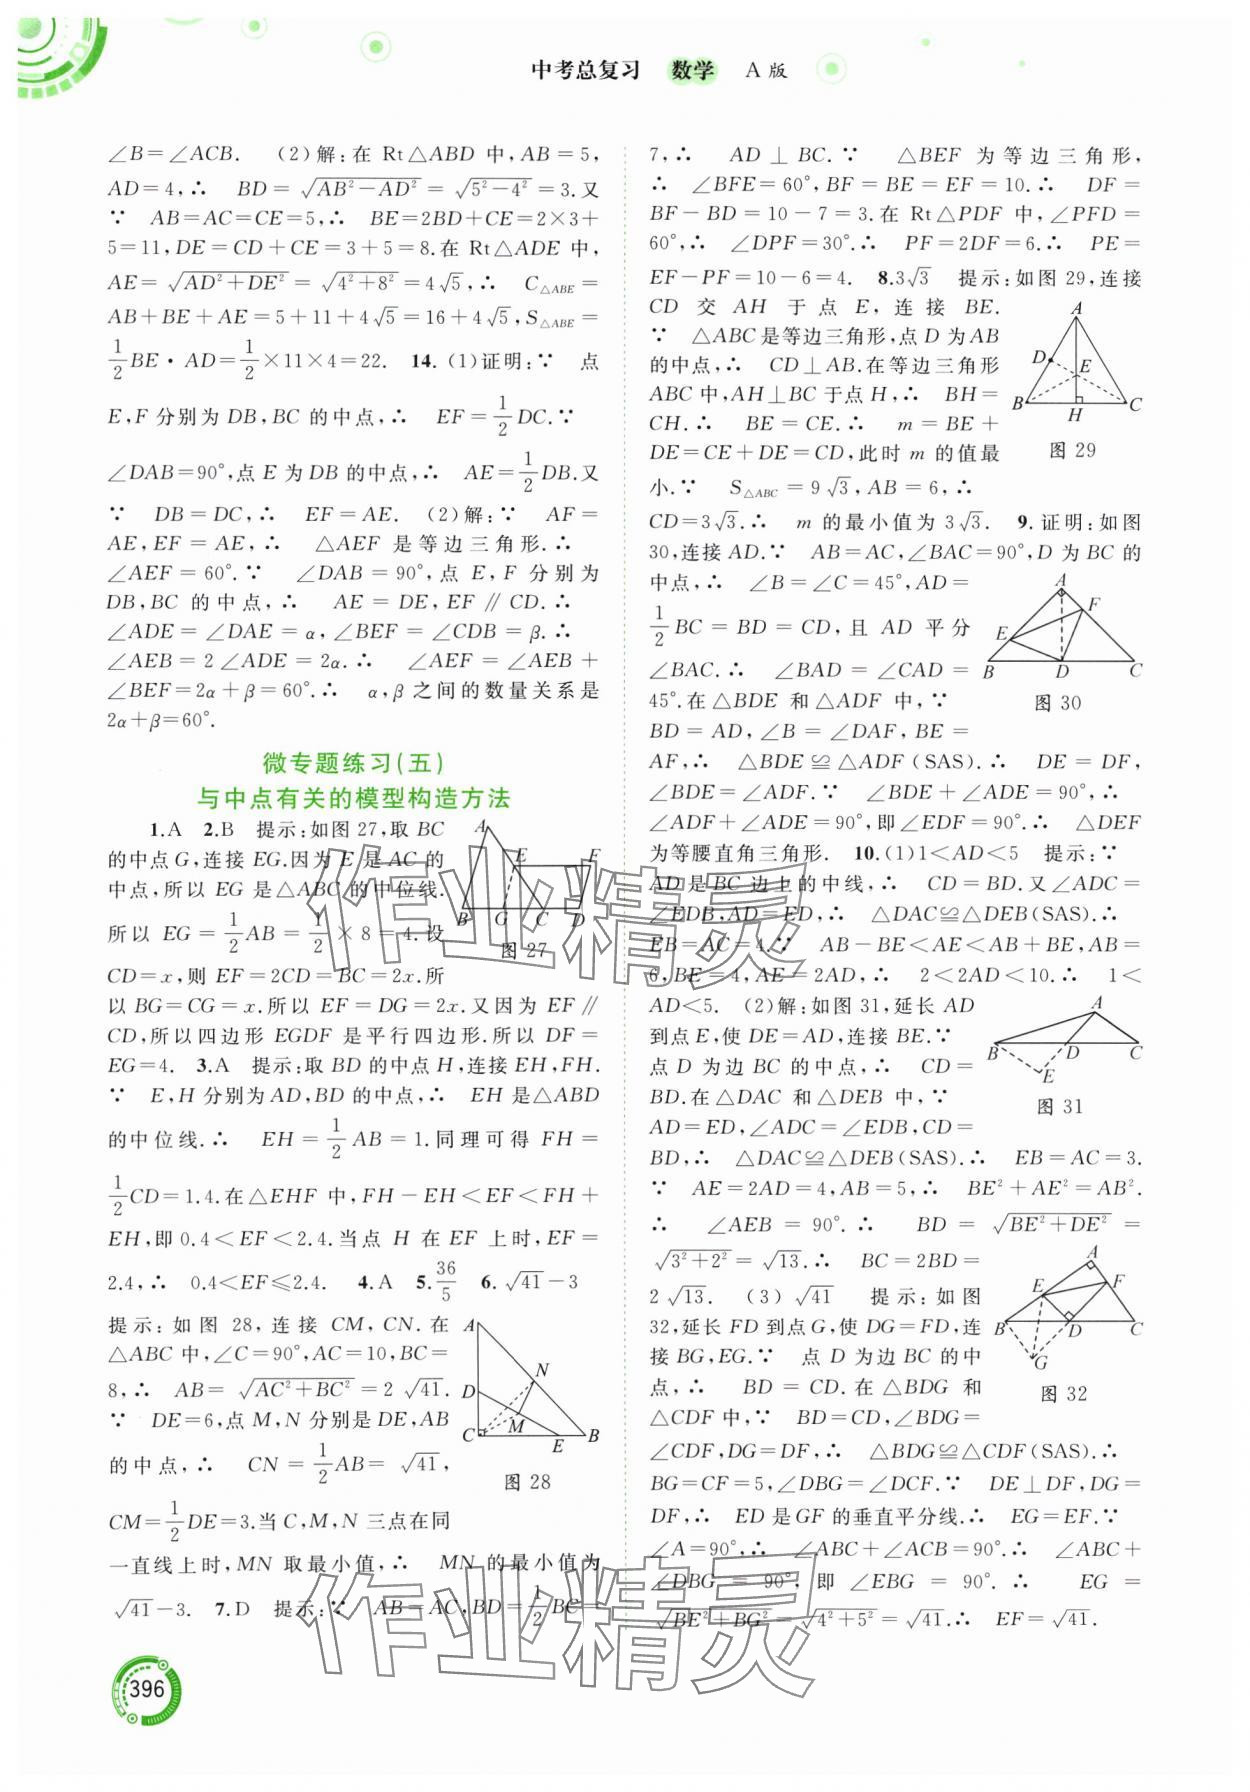 中考总复习 数学 A 版
∠B=∠ACB. (2)解:在 Rt△ABD 中,AB=5,
AD=4,∴ BD=√(AB²-AD²)=√(5²-4²)=3.又
∵ AB=AC=CE=5,∴ BE=2BD+CE=2×3+
5=11,DE=CD+CE=3+5=8.在 Rt△ADE 中,
AE=√(AD²+DE²)=√(4²+8²)=4√5,∴ C△ABE=
AB+BE+AE=5+11+4√5=16+4√5,S△ABE=
1/2 BE·AD=1/2×11×4=22. 14.(1)证明:∵ 点
E,F 分别为 DB,BC 的中点,∴ EF=1/2 DC.∵
∠DAB=90°,点 E 为 DB 的中点,∴ AE=1/2 DB.又
∵ DB=DC,∴ EF=AE. (2)解:∵ AF=
AE,EF=AE,∴ △AEF 是等边三角形.∴
∠AEF=60°.∵ ∠DAB=90°,点 E,F 分别为
DB,BC 的中点,∴ AE=DE,EF∥CD.∴
∠ADE=∠DAE=α,∠BEF=∠CDB=β.∴
∠AEB=2∠ADE=2α.∴ ∠AEF=∠AEB+
∠BEF=2α+β=60°.∴ α,β 之间的数量关系是
2α+β=60°.
微专题练习(五)
与中点有关的模型构造方法
1.A 2.B 提示:如图 27,取 BC
的中点 G,连接 EG.因为 E 是 AC 的
中点,所以 EG 是△ABC 的中位线.
所以 EG=1/2 AB=1/2×8=4.设
CD=x,则 EF=2CD=BC=2x.所
以 BG=CG=x.所以 EF=DG=2x.又因为 EF∥
CD,所以四边形 EGDF 是平行四边形.所以 DF=
EG=4. 3.A 提示:取 BD 的中点 H,连接 EH,FH.
∵ E,H 分别为 AD,BD 的中点,∴ EH 是△ABD
的中位线.∴ EH=1/2 AB=1.同理可得 FH=
1/2 CD=1.4.在△EHF 中,FH-EH<EF<FH+
EH,即 0.4<EF<2.4.当点 H 在 EF 上时,EF=
2.4,∴ 0.4<EF≤2.4. 4.A 5.36/5 6.√41-3
提示:如图 28,连接 CM,CN.在
△ABC 中,∠C=90°,AC=10,BC=
8,∴ AB=√(AC²+BC²)=2√41.
∵ DE=6,点 M,N 分别是 DE,AB
的中点,∴ CN=1/2 AB=√41,
CM=1/2 DE=3.当 C,M,N 三点在同
一直线上时,MN 取最小值,∴ MN 的最小值为
√41-3. 7.D 提示:∵ AB=AC,BD=1/2 BC=
A E F B G C D
图 27
A N D M C E B
图 28
396
7,∴ AD⊥BC.∵ △BEF 为等边三角形,
∴ ∠BFE=60°,BF=BE=EF=10.∴ DF=
BF-BD=10-7=3.在 Rt△PDF 中,∠PFD=
60°,∴ ∠DPF=30°.∴ PF=2DF=6.∴ PE=
EF-PF=10-6=4. 8.3√3 提示:如图 29,连接
CD 交 AH 于点 E,连接 BE.
∵ △ABC 是等边三角形,点 D 为 AB
的中点,∴ CD⊥AB.在等边三角形
ABC 中,AH⊥BC 于点 H,∴ BH=
CH.∴ BE=CE.∴ m=BE+
DE=CE+DE=CD,此时 m 的值最
小.∵ S△ABC=9√3,AB=6,∴
CD=3√3.∴ m 的最小值为 3√3. 9.证明:如图
30,连接 AD.∵ AB=AC,∠BAC=90°,D 为 BC 的
中点,∴ ∠B=∠C=45°,AD=
1/2 BC=BD=CD,且 AD 平分
∠BAC.∴ ∠BAD=∠CAD=
45°.在△BDE 和△ADF 中,∵
BD=AD,∠B=∠DAF,BE=
AF,∴ △BDE≌△ADF(SAS).∴ DE=DF,
∠BDE=∠ADF.∵ ∠BDE+∠ADE=90°,∴
∠ADF+∠ADE=90°,即∠EDF=90°.∴ △DEF
为等腰直角三角形. 10.(1)1<AD<5 提示:∵
AD 是 BC 边上的中线,∴ CD=BD.又∠ADC=
∠EDB,AD=ED,∴ △DAC≌△DEB(SAS).∴
EB=AC=4.∵ AB-BE<AE<AB+BE,AB=
6,BE=4,AE=2AD,∴ 2<2AD<10.∴ 1<
AD<5. (2)解:如图 31,延长 AD
到点 E,使 DE=AD,连接 BE.∵
点 D 为边 BC 的中点,∴ CD=
BD.在△DAC 和△DEB 中,∵
AD=ED,∠ADC=∠EDB,CD=
BD,∴ △DAC≌△DEB(SAS).∴ EB=AC=3.
∵ AE=2AD=4,AB=5,∴ BE²+AE²=AB².
∴ ∠AEB=90°.∴ BD=√(BE²+DE²)=
√(3²+2²)=√13.∴ BC=2BD=
2√13. (3)√41 提示:如图
32,延长 FD 到点 G,使 DG=FD,连
接 BG,EG.∵ 点 D 为边 BC 的中
点,∴ BD=CD.在△BDG 和
△CDF 中,∵ BD=CD,∠BDG=
∠CDF,DG=DF,∴ △BDG≌△CDF(SAS).∴
BG=CF=5,∠DBG=∠DCF.∵ DE⊥DF,DG=
DF,∴ ED 是 GF 的垂直平分线.∴ EG=EF.∵
∠A=90°,∴ ∠ABC+∠ACB=90°.∴ ∠ABC+
∠DBG=90°,即∠EBG=90°.∴ EG=
√(BE²+BG²)=√(4²+5²)=√41.∴ EF=√41.
A D E B H C
图 29
A F E B D C
图 30
A B D C E
图 31
A E F B D C G
图 32
作业精灵
作业精灵